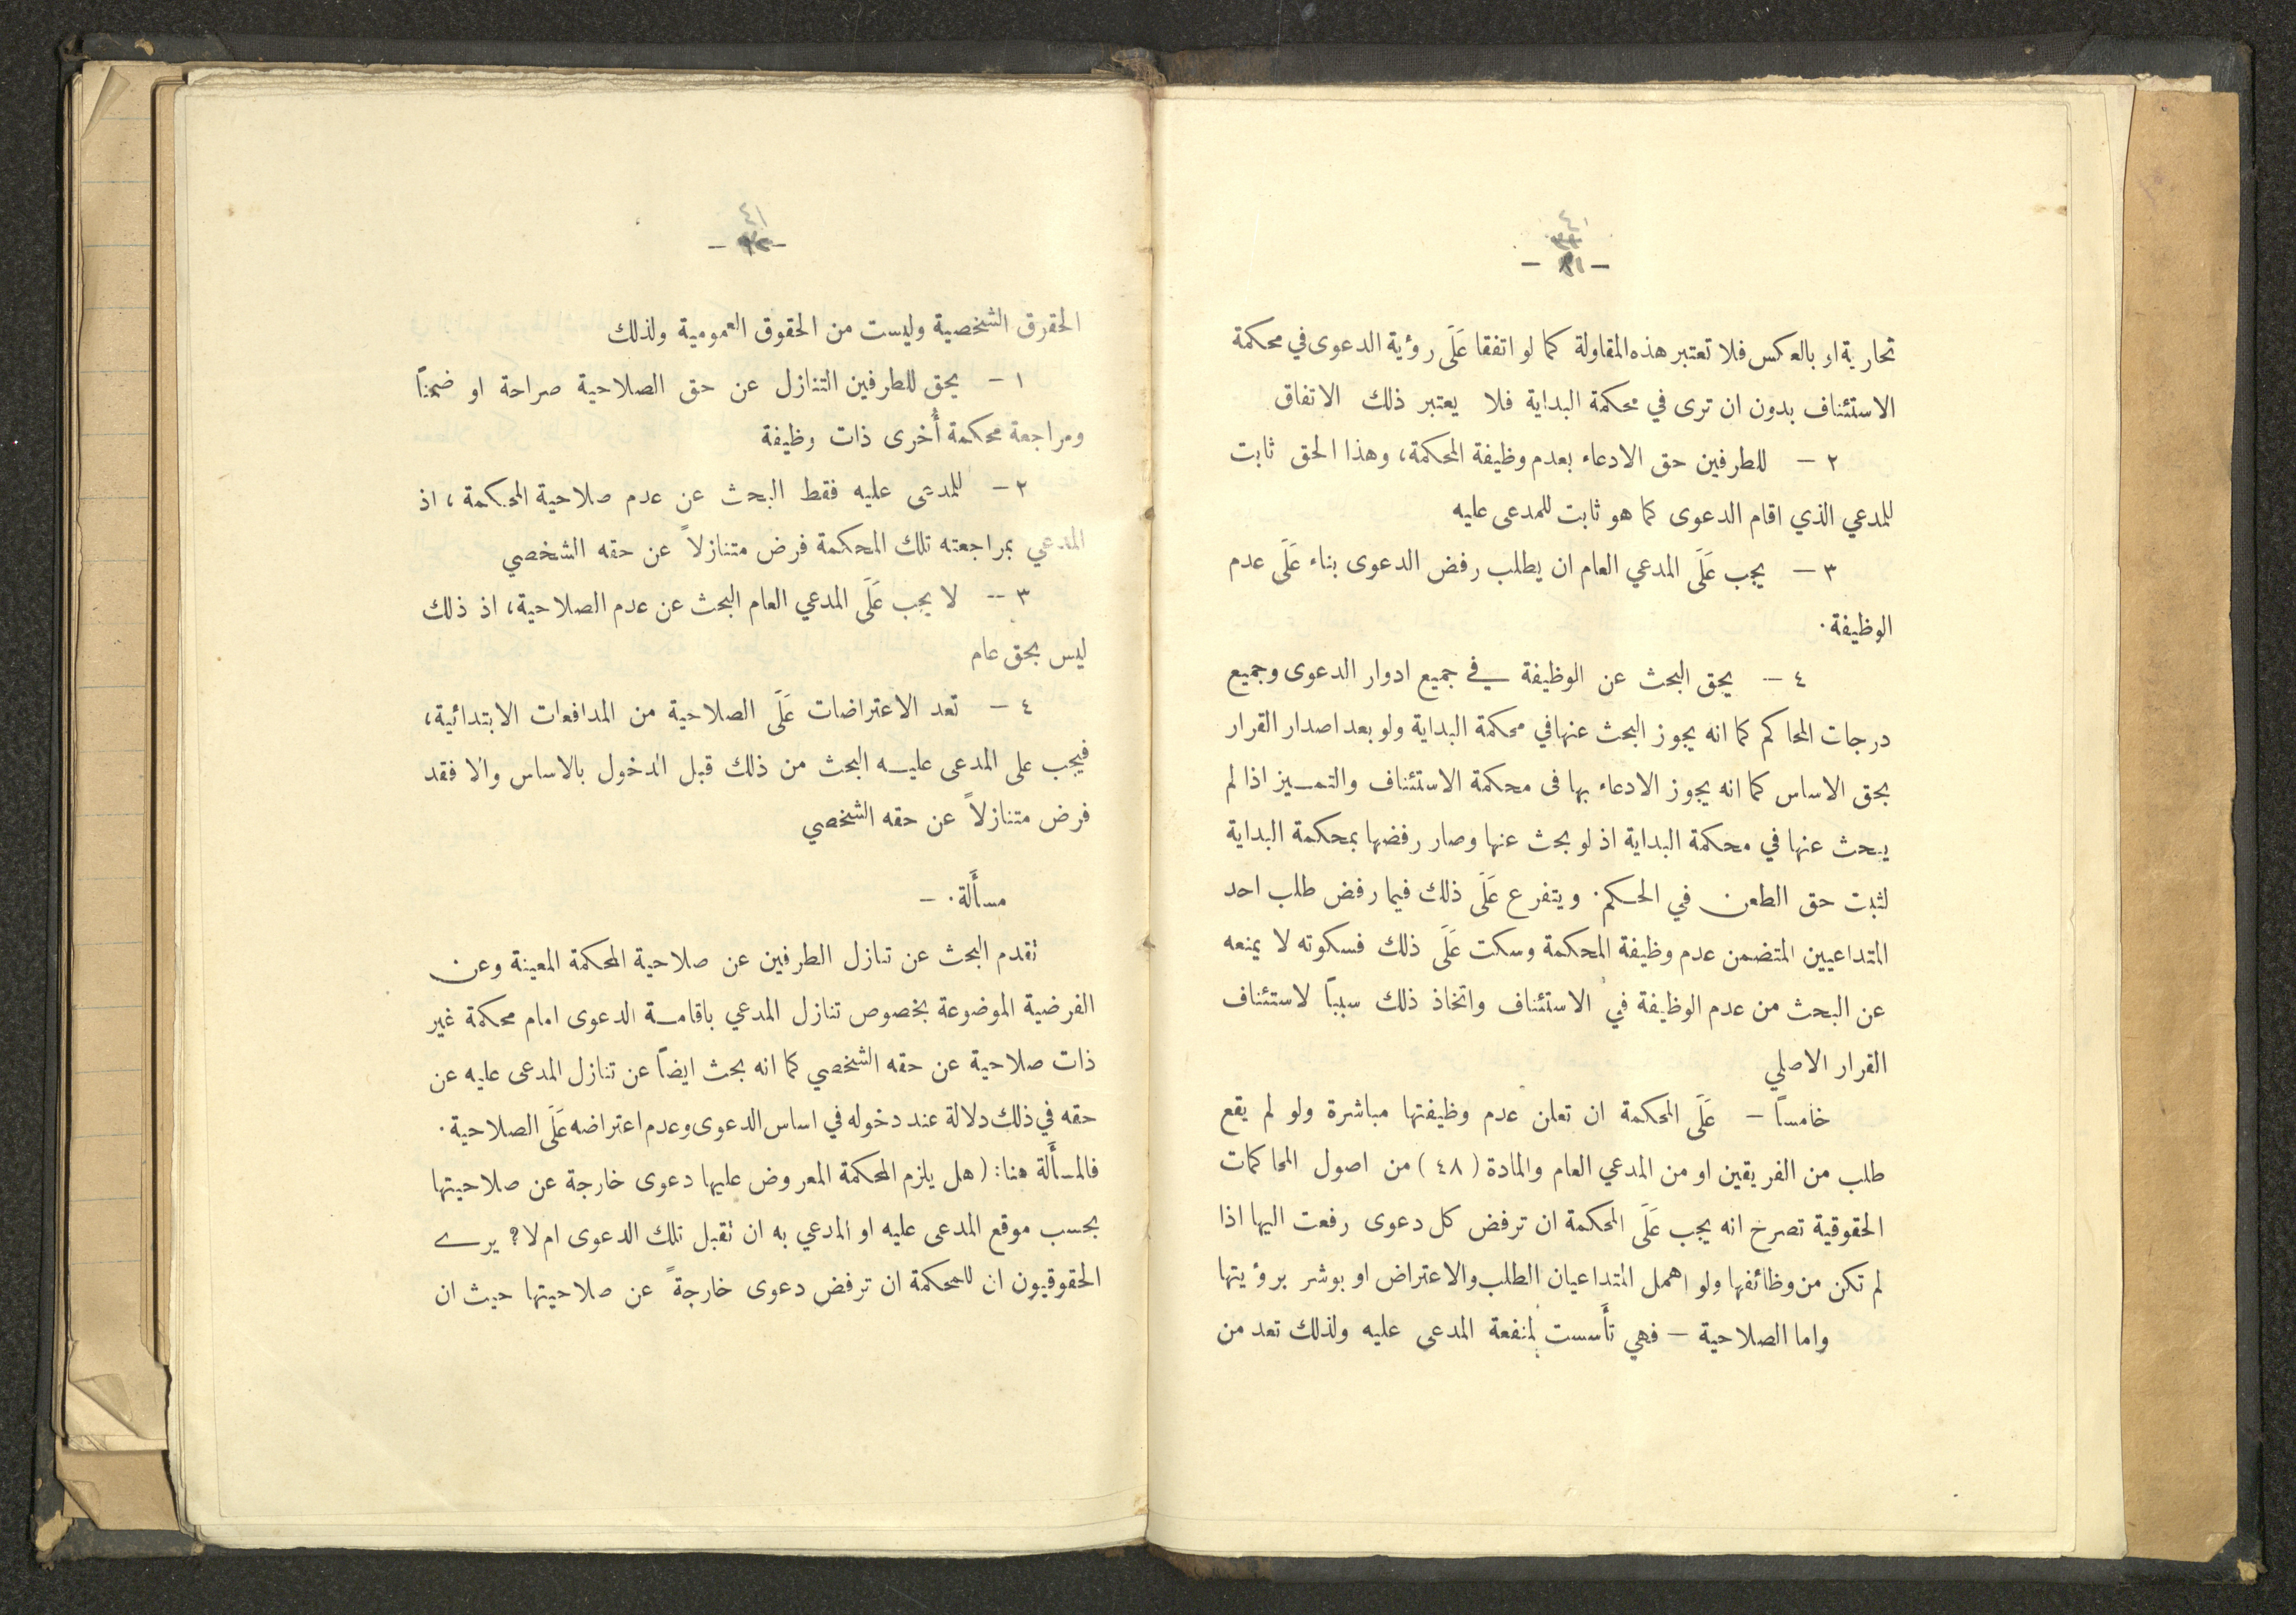 تحارية او بالعكس فلا تعتبر هذه المقاولة كما لو اتفقا عَلَى رؤية الدعوى في محكمة
الاستئناف بدون ان ترى في محكمة البداية فلا يعتبر ذلك الاتفاق
٢ – للطرفين حق الادعاء بعدم وظيفة المحكمة، وهذا الحق ثابت
للمدعي الذي اقام الدعوى كما هو ثابت للمدعى عليه
٣ – يجب عَلَى المدعي العام ان يطلب رفض الدعوى بناء عَلَى عدم
الوظيفة.
٤ – يحق البحث عن الوظيفة في جميع ادوار الدعوى وجميع
درجات المحاكم كما انه يجوز البحث عنها في محكمة البداية ولو بعد اصدار القرار
بحق الاساس كما انه يجوز الادعاء بها فى محكمة الاستئناف والتمييز اذا لم
يبحث عنها في محكمة البداية اذ لو بحث عنها وصار رفضها بمحكمة البداية
لثبت حق الطعن في الحكم. ويتفرع عَلَى ذلك فيما رفض طلب احد
المتداعيين المتضمن عدم وظيفة المحكمة وسكت عَلَى ذلك فسكوته لا يمنعه
عن البحث من عدم الوظيفة في الاستئناف واتخاذ ذلك سبباً لاستئناف
القرار الاصلي
خامساً – عَلَى المحكمة ان تعلن عدم وظيفتها مباشرة ولو لم يقع
طلب من الفريقين او من المدعي العام والمادة (٤٨) من اصول المحاكمات
الحقوقية تصرخ انه يجب عَلَى المحكمة ان ترفض كل دعوى رفعت اليها اذا
لم تكن من وظائفها ولو اهمل المتداعيان الطلب والاعتراض او بوشر برؤيتها
واما الصلاحية – فهي تأَسست لمنفعة المدعى عليه ولذلك تعد من
٤١
الحقرق الشخصية وليست من الحقوق العمومية ولذلك
١ – يحق للطرفين التنازل عن حق الصلاحية صراحة او ضمناً
ومراجعة محكمة أُخرى ذات وظيفة
٢ – للمدعى عليه فقط البحث عن عدم صلاحية المحكمة، اذ
المدعي بمراجعته تلك المحكمة فرض متنازلاً عن حقه الشخصي
٣ – لا يجب عَلَى المدعي العام البحث عن عدم الصلاحية، اذ ذلك
ليس بحق عام
٤ – تعد الاعتراضات عَلَى الصلاحية من المدافعات الابتدائية،
فيجب على المدعى عليه البحث من ذلك قبل الدخول بالاساس والا فقد
فرض متنازلاً عن حقه الشخصي
مسأَلة. –
تقدم البحث عن تنازل الطرفين عن صلاحية المحكمة المعينة وعن
الفرضية الموضوعة بخصوص تنازل المدعي باقامة الدعوى امام محكمة غير
ذات صلاحية عن حقه الشخصي كما انه بحث ايضاً عن تنازل المدعى عليه عن
حقه في ذلك دلالة عند دخوله في اساس الدعوى وعدم اعتراضه عَلَى الصلاحية.
فالمسأَلة هنا: (هل يلزم المحكمة المعروض عليها دعوى خارجة عن صلاحيتها
بحسب موقع المدعى عليه او المدعي به ان تقبل تلك الدعوى ام لا؟ يرى
الحقوقيون ان للمحكمة ان ترفض دعوى خارجةً عن صلاحيتها حيث ان